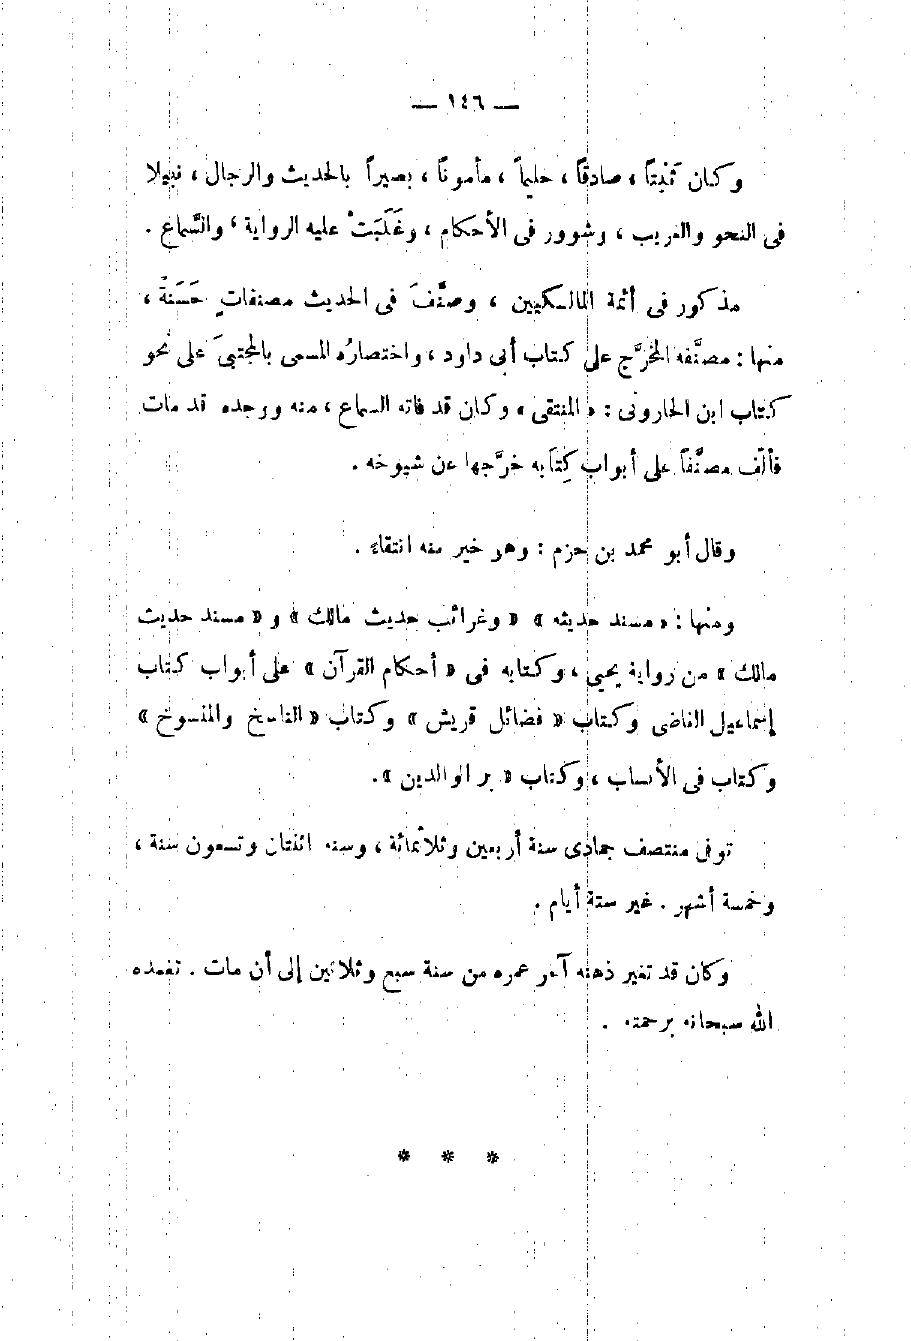 — ١٤٦ —
وكان ثَبْتاً ، صادقاً ، حليماً ، مأموناً ، بصيراً بالحديث والرجال ، نبيلا
فى النحو والغريب ، وشوور فى الأحكام ، وغَلَبَتْ عليه الرواية ، والسَّماع .
مذكور فى أئمة المالكيين ، وصنَّفَ فى الحديث مصنفاتٍ حَسَنةً ،
منها : مصنَّفه المخرَّج على كتاب أبى داود ، واختصارُه المسمى بالمجتبىَ على نحو
كتاب ابن الجارودى : « المنتقى » وكان قد فاته السماع ، منه ووجده قد مات
فألّف مصنَّفاً على أبواب كِتَابه خرَّجها عن شيوخه .
وقال أبو محمد بن حزم : وهو خير منه انتقاءً .
ومنها : « مسند حديثه » « وغرائب حديث مالك » و « مسند حديث
مالك » من رواية يحيى ، وكتابه فى « أحكام القرآن » على أبواب كتاب
إسماعيل القاضى وكتاب « فضائل قريش » وكتاب « الناسخ والمنسوخ »
وكتاب فى الأنساب ، وكتاب « بر الوالدين » .
توفى منتصف جمادى سنة أربعين وثلاثمائة ، وسنه اثنتان وتسعون سنة ،
وخمسة أشهر . غير ستة أيام .
وكان قد تغير ذهنه آخر عمره من سنة سبع وثلاثين إلى أن مات . تغمده
الله سبحانه برحمته .
* * *